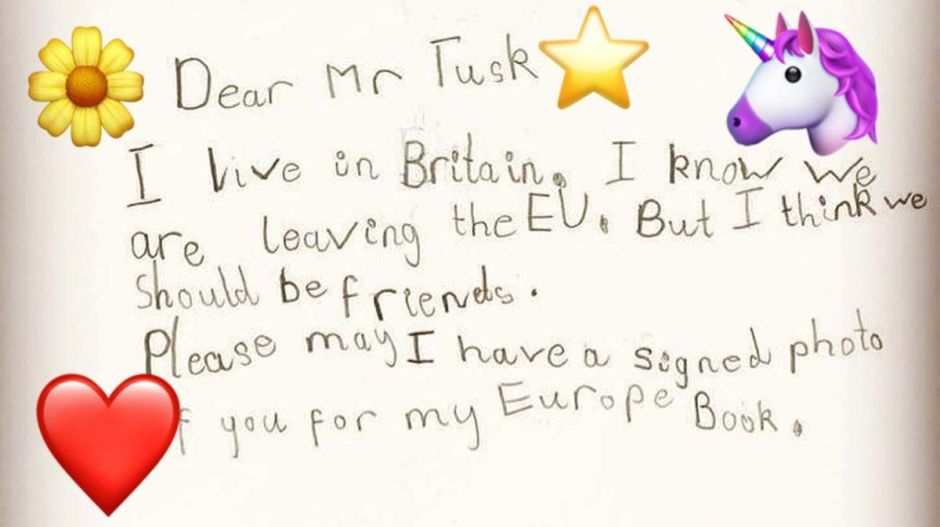 Dear Mr Tusk
I live in Britain. I know we
are leaving the EU. But I think we
should be friends.
Please may I have a signed photo
f you for my Europe Book.